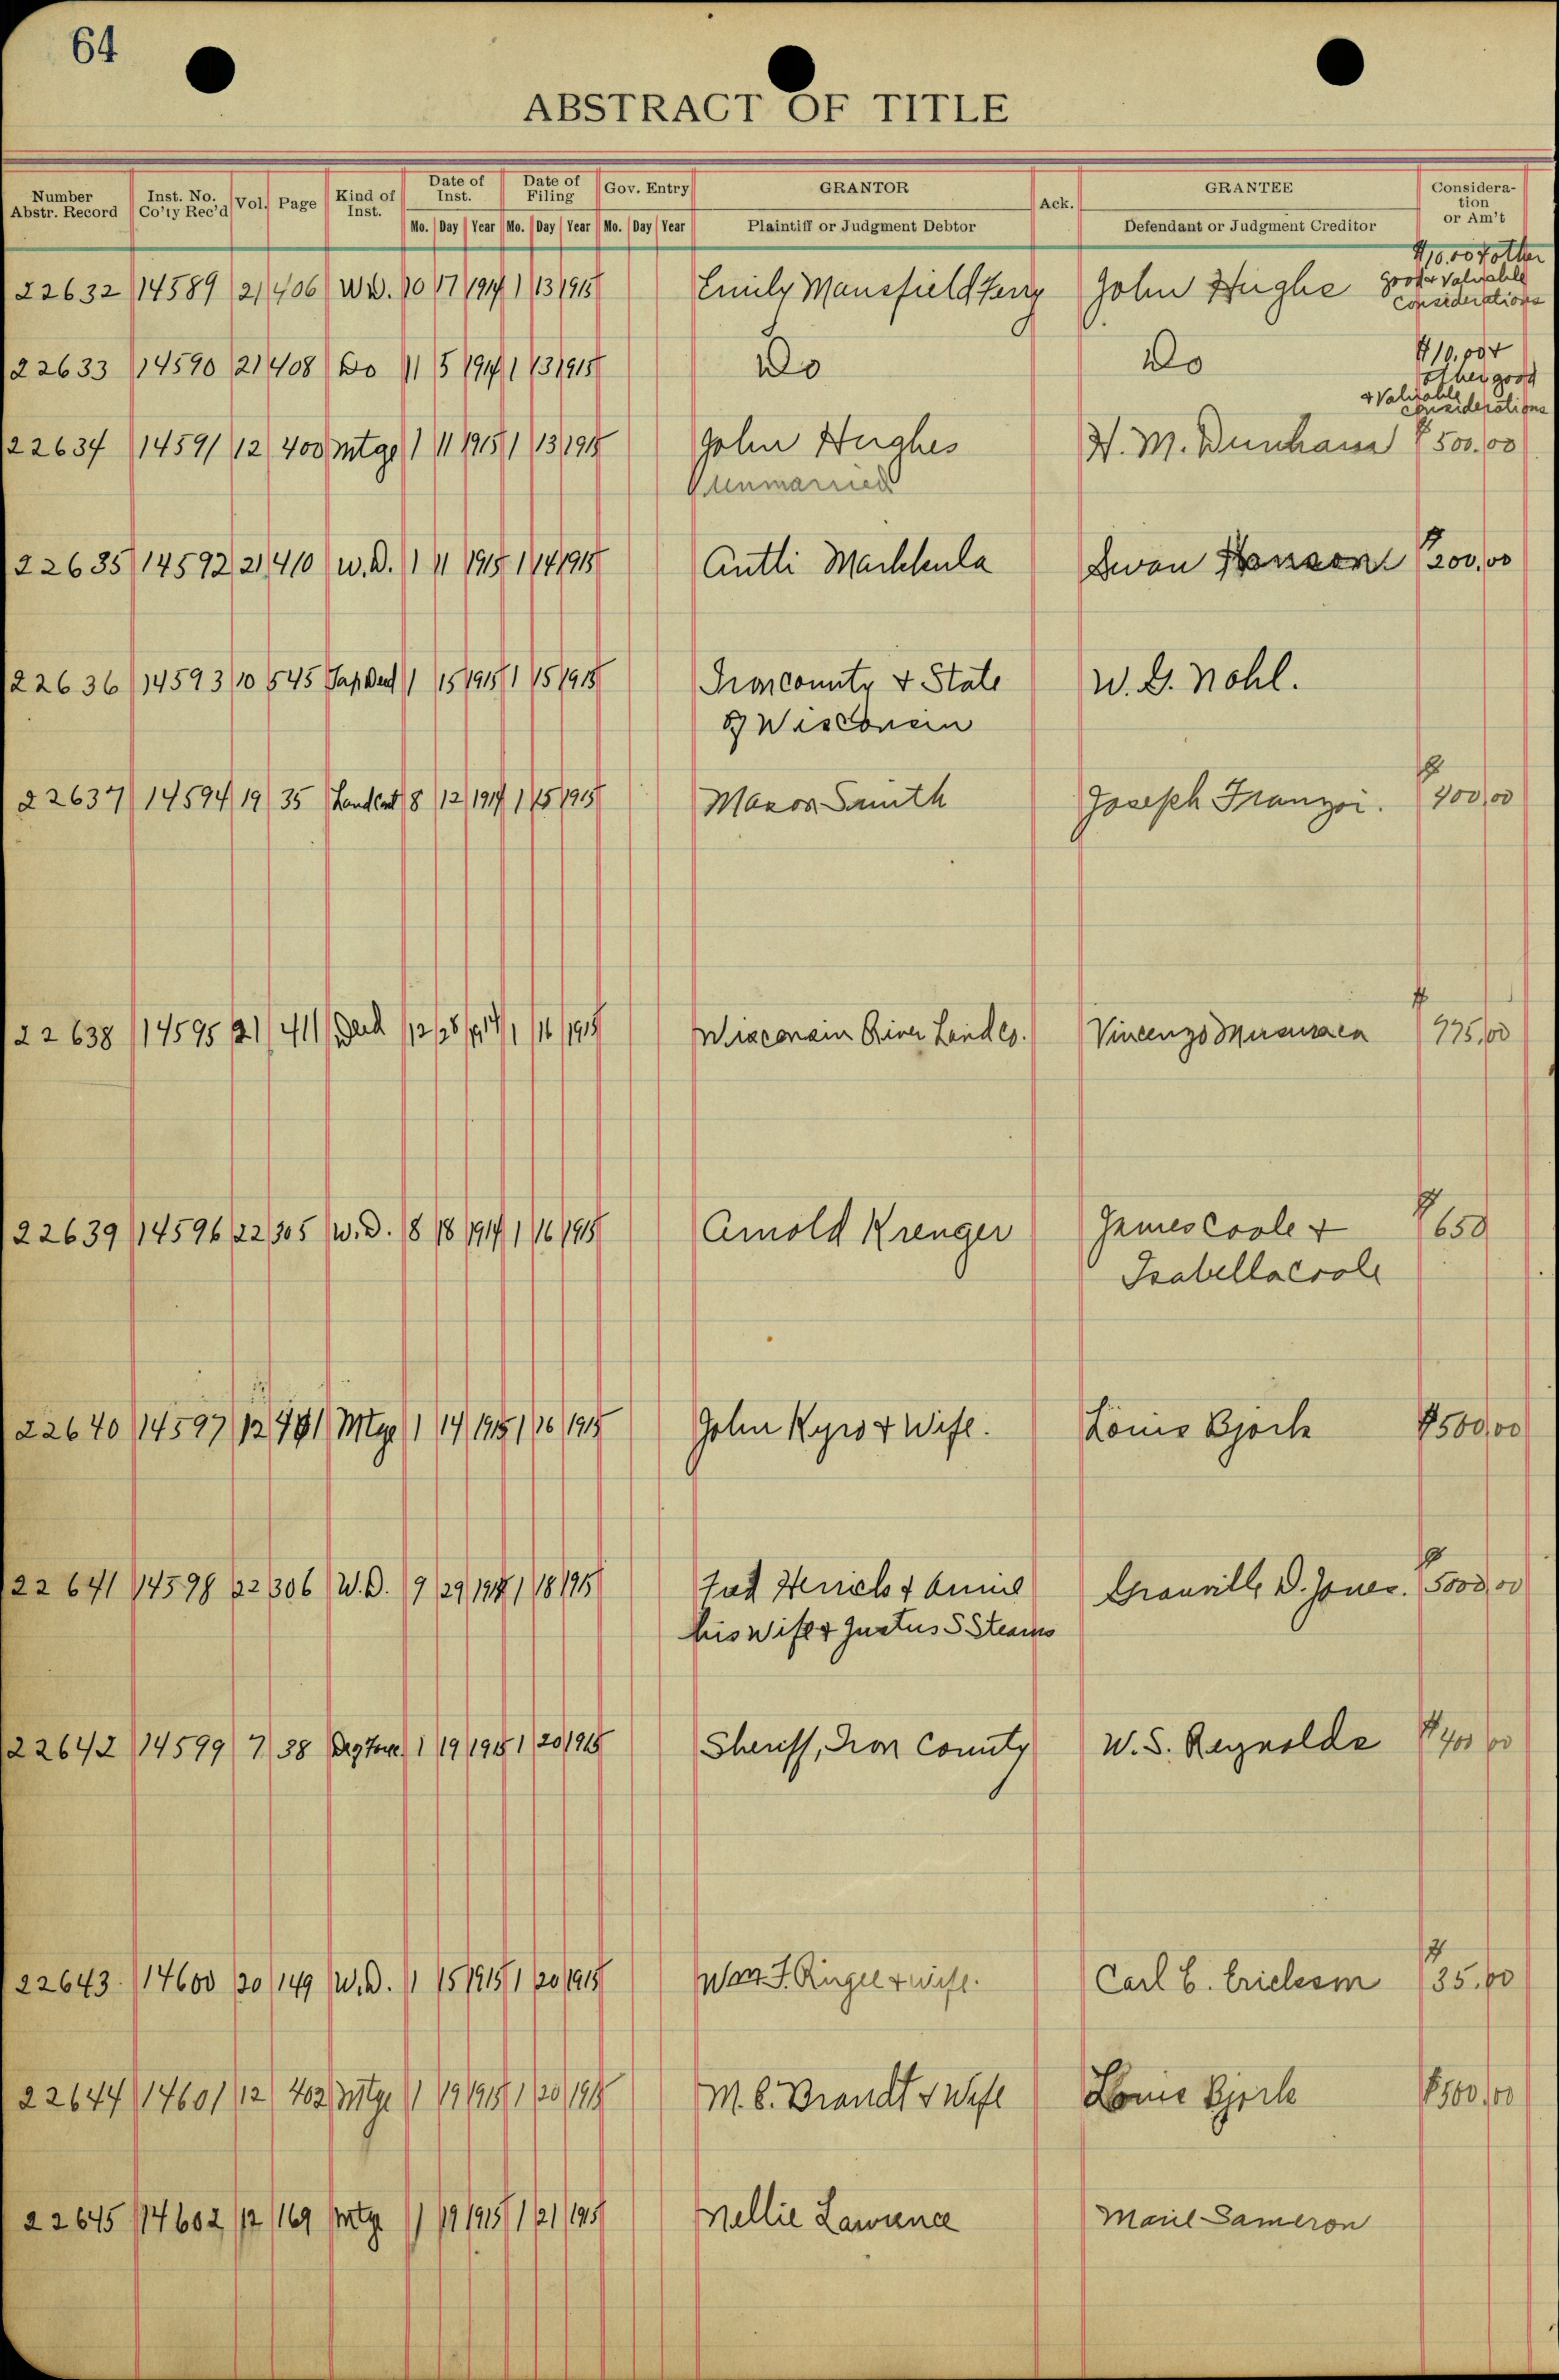 64
ABSTRACT OF TITLE
Number Abstr. Record Inst. No. Co'ty Rec'd Vol. Page Kind of Inst. Date of Inst. Date of Filing Gov. Entry GRANTOR Ack. GRANTEE Consideration or Am't
Mo. Day Year Mo. Day Year Mo. Day Year Plaintiff or Judgment Debtor Defendant or Judgment Creditor
22632 14589 21 406 W.D. 10 17 1914 1 13 1915 Emily Mansfield Terry John Hughe $10.00 & other
good & valuable
considerations
22633 14590 21 408 Do 11 5 1914 1 13 1915 Do Do $10.00 &
other good
& Valuable
considerations
22634 14591 12 400 Mtge 1 11 1915 1 13 1915 John Hughes H. M. Dunham $500.00
Unmarried
22635 14592 21 410 W.D. 1 11 1915 1 14 1915 Antti Machkula Swan Hanson $200.00
22636 14593 10 545 Tax Deed 1 15 1915 1 15 1915 Iron county & State W. G. Nohl.
of Wisconsin
22637 14594 19 35 Land Cont 8 12 1914 1 15 1915 Mason Smith Joseph Franzoi. $400.00
22638 14595 21 411 Deed 12 28 1914 1 16 1915 Wisconsin River Land Co. Vincenzo $975.00
22639 14596 22 305 W.D. 8 18 1914 1 16 1915 Arnold Krenger James Coole & $650
Isabella Coole
22640 14597 12 401 Mtge 1 14 1915 1 16 1915 John Kyro & Wife. Louis Bjork $500.00
22641 14598 22 306 W.D. 9 29 1914 1 18 1915 Tad Herrick & Annie Granville D. Jones. $5000.00
his Wife & Justus S Stearns
22642 14599 7 38 1 19 1915 1 20 1915 Sheriff, Iron County W. S. Reynolds $400.00
22643 14600 20 149 W.D. 1 15 1915 1 20 1915 Wm. F. Ringle & wife. Carl E. Erickson $35.00
22644 14601 12 402 Mtge 1 19 1915 1 20 1915 M. E. Brandt & Wife Louis Bjork $500.00
22645 14602 12 169 Mtge 1 19 1915 1 21 1915 Nellie Lawrence Marie Sameron